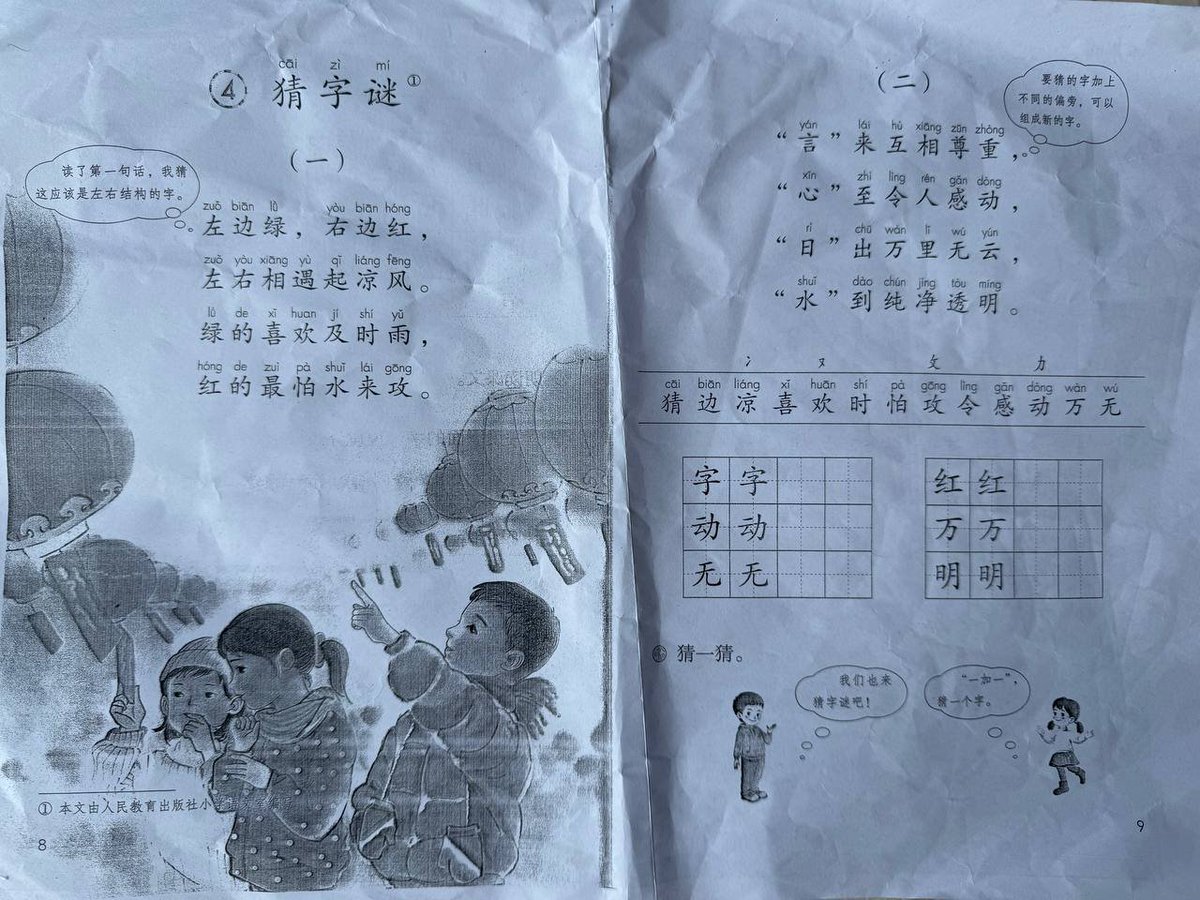 cāi zì mí
④ 猜字谜①
（一）
读了第一句话，我猜
这应该是左右结构的字。
zuǒ biān lǜ yòu biān hóng
左边绿，右边红，
zuǒ yòu xiāng yù qǐ liáng fēng
左右相遇起凉风。
lǜ de xǐ huan jí shí yǔ
绿的喜欢及时雨，
hóng de zuì pà shuǐ lái gōng
红的最怕水来攻。
① 本文由人民教育出版社小
8
（二）
要猜的字加上
不同的偏旁，可以
组成新的字。
yán lái hù xiāng zūn zhòng
“言”来互相尊重，
xīn zhì lìng rén gǎn dòng
“心”至令人感动，
rì chū wàn lǐ wú yún
“日”出万里无云，
shuǐ dào chún jìng tòu míng
“水”到纯净透明。
冫 又 攵 力
cāi biān liáng xǐ huān shí pà gōng lìng gǎn dòng wàn wú
猜边凉喜欢时怕攻令感动万无
字字
动动
无无
红红
万万
明明
猜一猜。
我们也来
猜字谜吧！
“一加一”，
猜一个字。
9